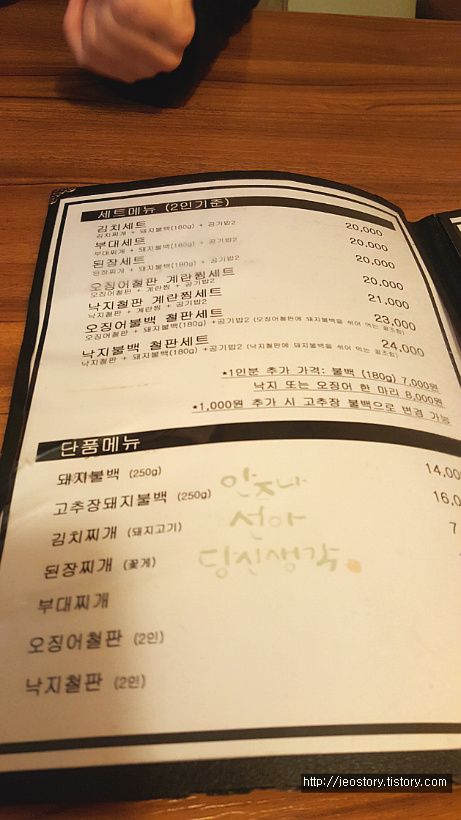 세트메뉴 (2인기준)
김치세트 20,000
김치찌개 + 돼지불백(180g) + 공기밥2
부대세트 20,000
부대찌개 + 돼지불백(180g) + 공기밥2
된장세트 20,000
된장찌개 + 돼지불백(180g) + 공기밥2
오징어철판 계란찜세트 20,000
오징어철판 + 계란찜 + 공기밥2
낙지철판 계란찜세트 21,000
낙지철판 + 계란찜 + 공기밥2
오징어불백 철판세트 23,000
오징어철판 + 돼지불백(180g) +공기밥2 (오징어철판에 돼지불백을 섞어 먹는 꿀조합)
낙지불백 철판세트 24,000
낙지철판 + 돼지불백(180g) +공기밥2 (낙지철판에 돼지불백을 섞어 먹는 꿀조합)
*1인분 추가 가격: 불백 (180g) 7,000원
낙지 또는 오징어 한 마리 8,000원
*1,000원 추가 시 고추장 불백으로 변경 가능
단품메뉴
돼지불백 (250g) 14,00
고추장돼지불백 (250g) 16,0
김치찌개 (돼지고기) 7
된장찌개 (꽃게)
부대찌개
오징어철판 (2인)
낙지철판 (2인)
당신생각
http://jeostory.tistory.com